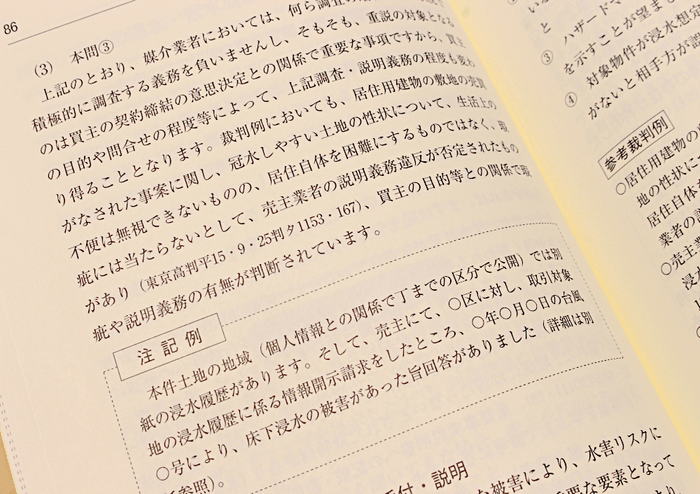 86
(3) 本問③
上記のとおり、媒介業者においては、何ら調査の
積極的に調査する義務を負いませんし、そもそも、重説の対象となる
のは買主の契約締結の意思決定との関係で重要な事項ですから、買主
の目的や問合せの程度等によって、上記調査・説明義務の程度も変わ
り得ることとなります。裁判例においても、居住用建物の敷地の売買
がなされた事案に関し、冠水しやすい土地の性状について、生活上の
不便は無視できないものの、居住自体を困難にするものではなく、瑕
疵には当たらないとして、売主業者の説明義務違反が否定されたもの
があり（東京高判平15・9・25判タ1153・167）、買主の目的等との関係で瑕
疵や説明義務の有無が判断されています。
注記例
本件土地の地域（個人情報との関係で丁までの区分で公開）では別
紙の浸水履歴があります。そして、売主にて、〇区に対し、取引対象
地の浸水履歴に係る情報開示請求をしたところ、〇年〇月〇日の台風
〇号により、床下浸水の被害があった旨回答がありました（詳細は別
参照）。
付・説明
な被害により、水害リスクに
要な要素となって
と
ハザードマ
を示すことが望ま
③ 対象物件が浸水想
④ がないと相手方が誤
参考裁判例
〇居住用建物の
地の性状に
居住自体
業者の
〇売主業
浸